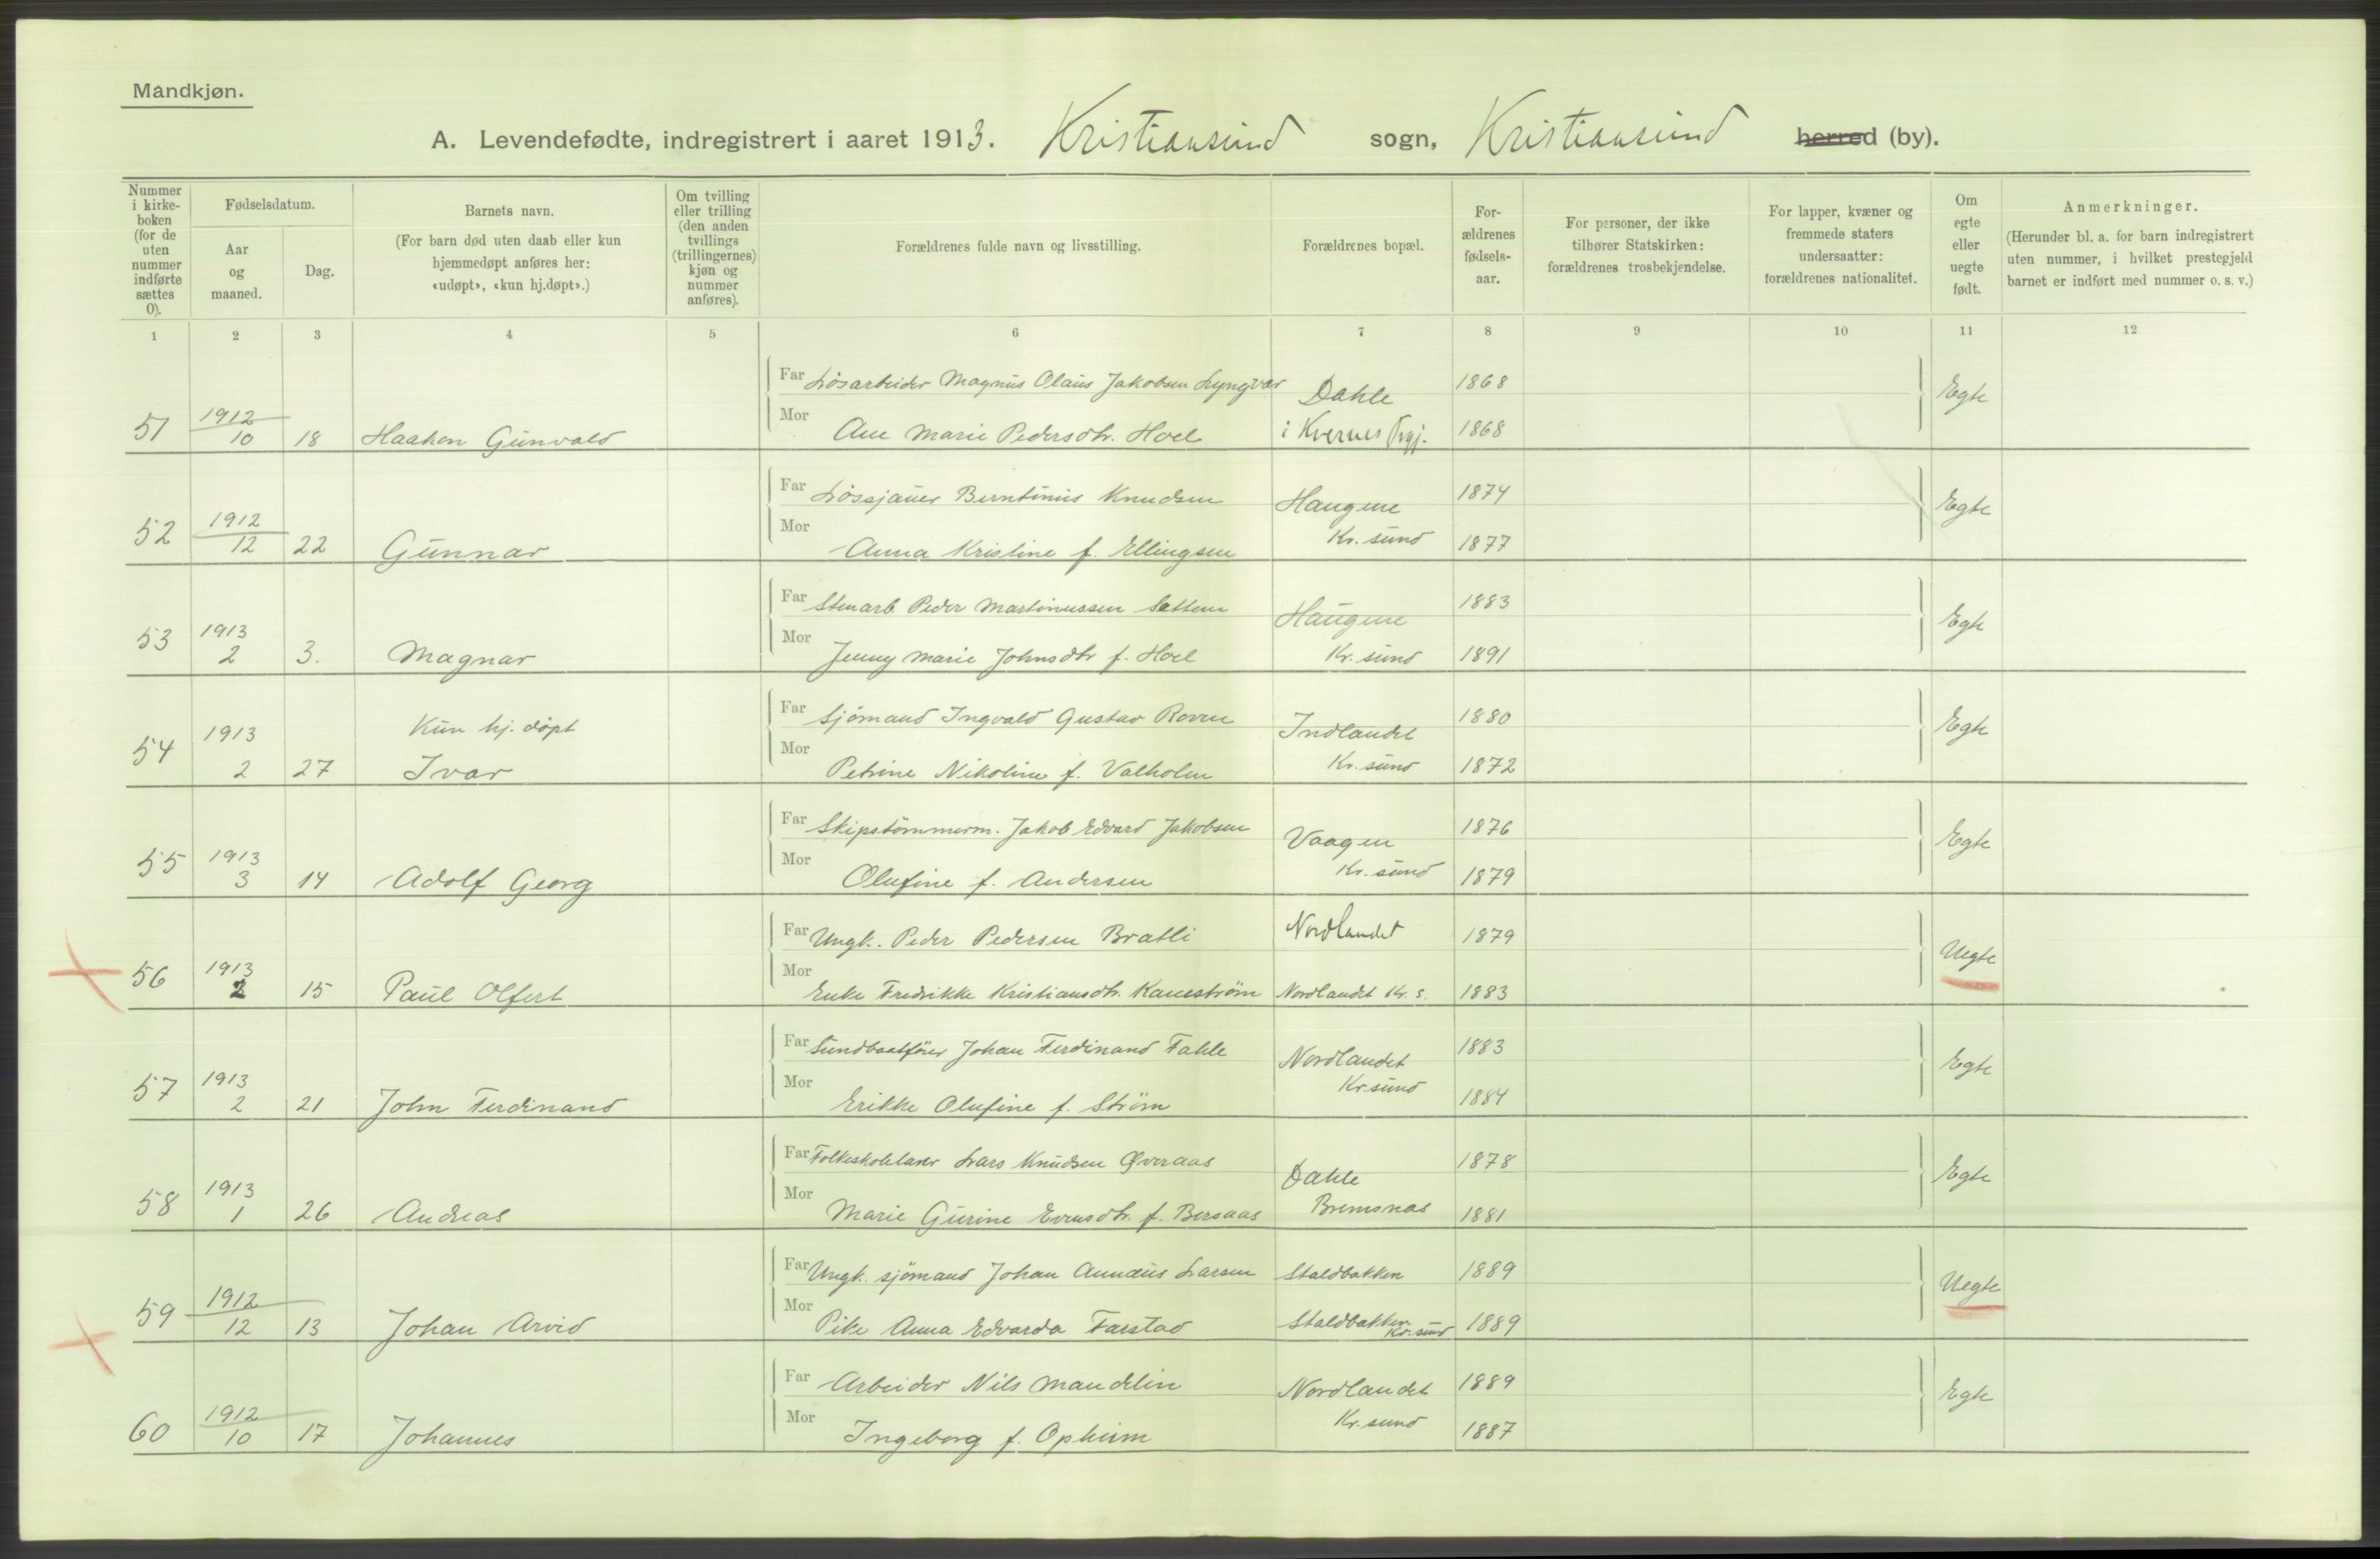 Mandkjøn.
A. Levendefødte, indregistrert i aaret 1913. Kristiansund sogn, Kristiansund herred (by).
Nummer i kirke-boken (for de uten nummer indførte sættes 0).
Fødselsdatum.
Aar og maaned.
Dag.
Barnets navn.
(For barn død uten daab eller kun hjemmedøpt anføres her: «udøpt», «kun hj.døpt».)
Om tvilling eller trilling (den anden tvillings (trillingernes) kjøn og nummer anføres).
Forældrenes fulde navn og livsstilling.
Forældrenes bopæl.
For-ældrenes fødsels-aar.
For personer, der ikke tilhører Statskirken: forældrenes trosbekjendelse.
For lapper, kvæner og fremmede staters undersaatter: forældrenes nationalitet.
Om egte eller uegte født.
Anmerkninger.
(Herunder bl. a. for barn indregistrert uten nummer, i hvilket prestegjeld barnet er indført med nummer o. s. v.)
1 2 3 4 5 6 7 8 9 10 11 12
Far Løsarbeider Magnus Olaus Jakobsen Lyngvær Dahle 1868 Egte
51 1912 10 18 Haakon Gunvald Mor Ane Marie Pedersdtr. Hoel i Kvernes Prgj. 1868
Far Løssjauer Berntinus Knudsen Haugene 1874 Egte
52 1912 12 22 Gunnar Mor Anna Kristine f. Ellingsen Kr. sund 1877
Far Stenarb. Peder Martinussen Sættem Haugene 1883 Egte
53 1913 2 3. Magnar Mor Jenny Marie Johnsdtr f. Hoel Kr. sund 1891
Kun hj. døpt Far Sjømand Ingvald Gustav Roven Indlandet 1880 Egte
54 1913 2 27 Ivar Mor Petrine Nikoline f. Valholm Kr. sund 1872
Far Skipstømmerm. Jakob Edvard Jakobsen Vaagen 1876 Egte
55 1913 3 14 Adolf Georg Mor Olufine f. Andersen Kr. sund 1879
Far Ungk. Peder Pedersen Bratli Nordlandet 1879 Uegte
56 1913 2 15 Paul Olfert Mor Enke Fredrikke Kristiansdtr. Kanestrøm Nordlandet Kr. s. 1883
Far Sundbaatfører Johan Ferdinand Fahle Nordlandet 1883 Egte
57 1913 2 21 John Ferdinand Mor Erikke Olufine f. Strøm Kr sund 1884
Far Folkeskolelærer Lars Knudsen Øveraas Dahle 1878 Egte
58 1913 1 26 Andreas Mor Marie Gurine Evensdtr. f. Bersaas Bremsnæs 1881
Far Ungk. sjømand Johan Annæus Larsen Staldbakken 1889 Uegte
59 1912 12 13 Johan Arvid Mor Pike Anna Edvarda Farstad Staldbakken Kr. sund 1889
Far Arbeider Nils Mandelin Nordlandet 1889 Egte
60 1912 10 17 Johannes Mor Ingeborg f. Opheim Kr. sund 1887